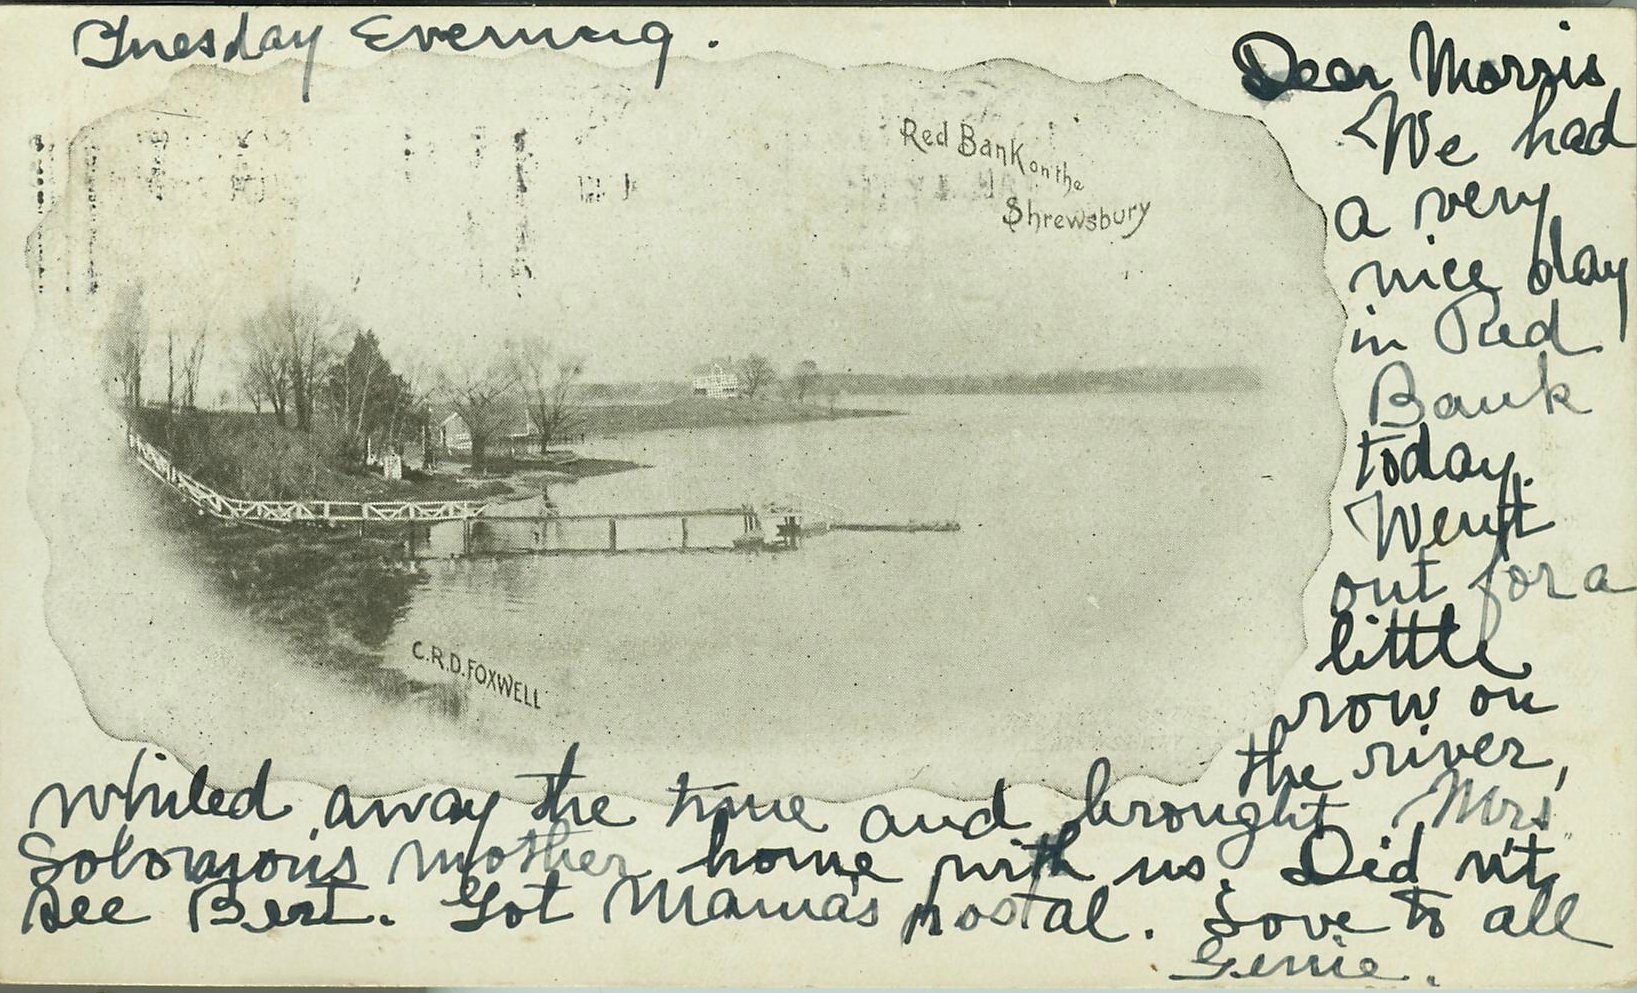 Tuesday Evening.
Red Bank on the
Shrewsbury
C.R.D. FOXWELL
Dear Morris
We had
a very
nice day
in Red
Bank
today.
Went
out for a
little
row on
the river,
whiled away the time and brought Mrs
Solomon's mother home with us. Did n't
see Bert. Got Mama's postal. Love to all
Genie.